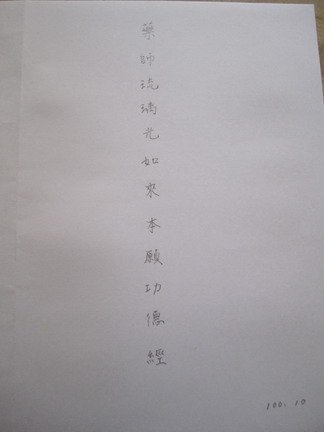 藥師琉璃光如來本願功德經
100.10